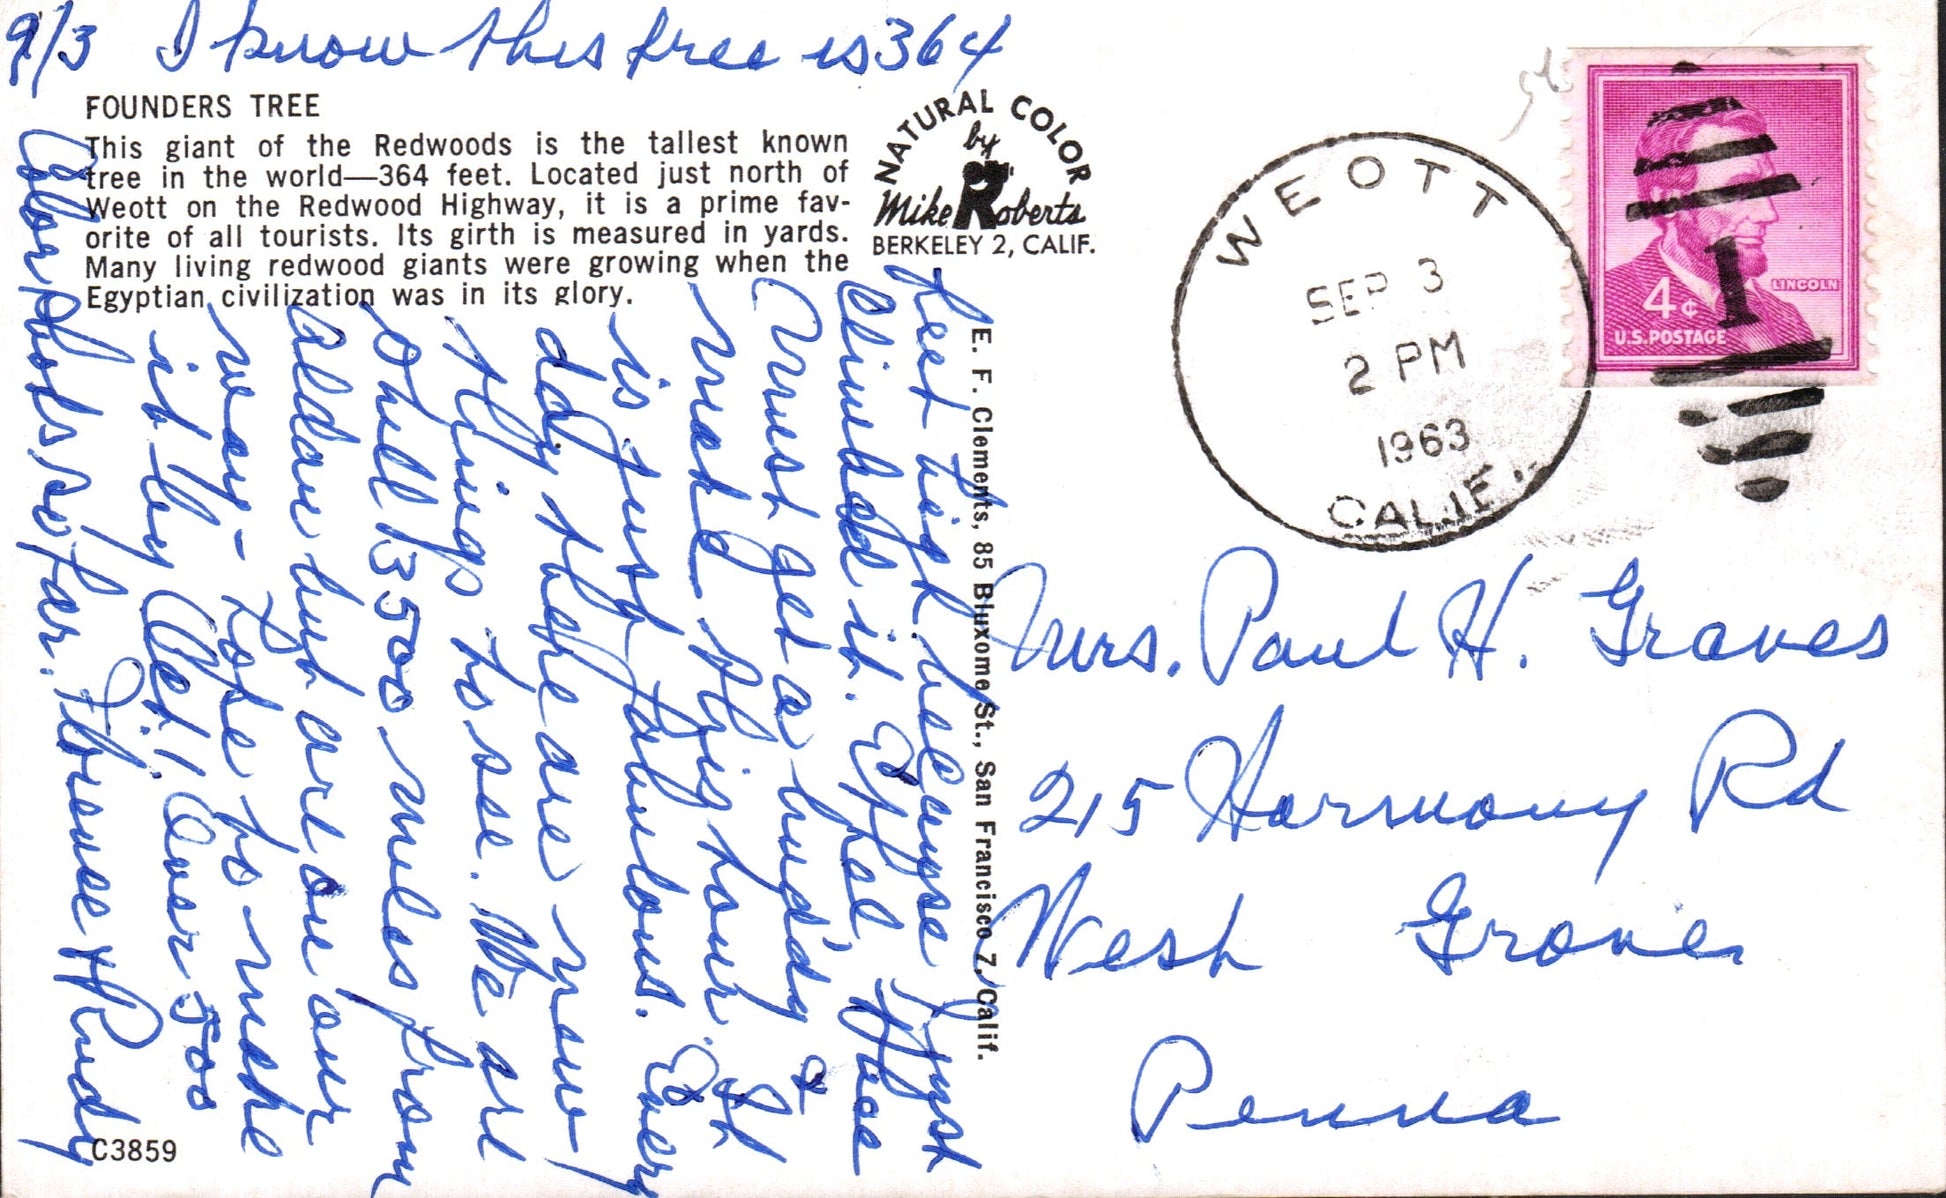 9/3 I know this tree is 364
FOUNDERS TREE
This giant of the Redwoods is the tallest known
tree in the world—364 feet. Located just north of
Weott on the Redwood Highway, it is a prime fav-
orite of all tourists. Its girth is measured in yards.
Many living redwood giants were growing when the
Egyptian civilization was in its glory.
NATURAL COLOR
by
Mike Roberts
BERKELEY 2, CALIF.
feet high because I just
climbed it. Ethel,
must get a buddy &
make this tour. It
is just fabulous. Every
day there are new
things to see. We are
still 3500 miles from
Alden but are on our
way - Hope to make
it by Oct!! Over 500
color photos so far. Florence & Rudy
C3859
E. F. Clements, 85 Bluxome St., San Francisco 7, Calif.
WEOTT
SEP 3
2 PM
1963
CALIF.
4¢
LINCOLN
U.S. POSTAGE
1
Mrs. Paul H. Graves
215 Harmony Rd
West Grove
Penna